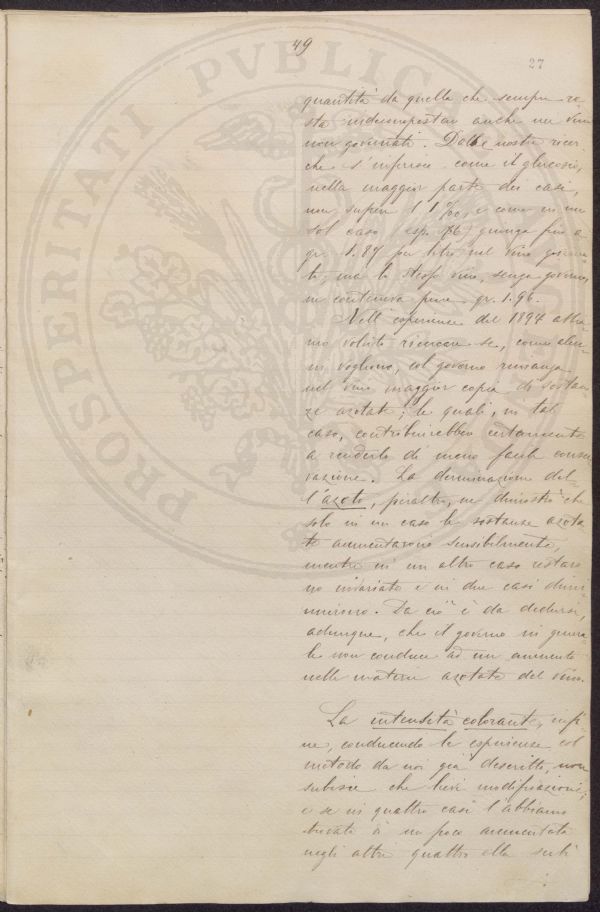 49
27
PROSPERITATI PVBLICAE
quantità da quella che sempre re-
sta indecomposta anche nei vini
non governati. Dalle nostre ricer-
che s'inferisce come il glucosio,
nella maggior parte dei casi,
non superi l'1 ‰, e come in un
sol caso (esp. 86) giunga fino a
gr. 1.87 per litro nel vino governa-
to, ma lo stesso vino, senza governo,
ne conteneva pure gr. 1.96.
Nell'esperienze del 1894 abbia-
mo voluto ricercare se, come alcu-
ni vogliono, col governo rimanga
nel vino maggior copia di sostan-
ze azotate; le quali, in tal
caso, contribuirebbero certamente
a renderlo di meno facile conser-
vazione. La derminazione del-
l'azoto, peraltro, ne dimostrò che
solo in un caso le sostanze azota-
te aumentarono sensibilmente,
mentre in un altro caso restaro-
no invariate e in due casi dimi-
nuirono. Da ciò è da dedursi,
adunque, che il governo in genera-
le non conduce ad un aumento
nelle materie azotate del vino.
La intensità colorante, infi-
ne, conducendo le esperienze col
metodo da noi già descritto, non
subisce che lievi modificazioni;
e se in quattro casi l'abbiamo
trovata di un poco aumentata
negli altri quattro ella subì